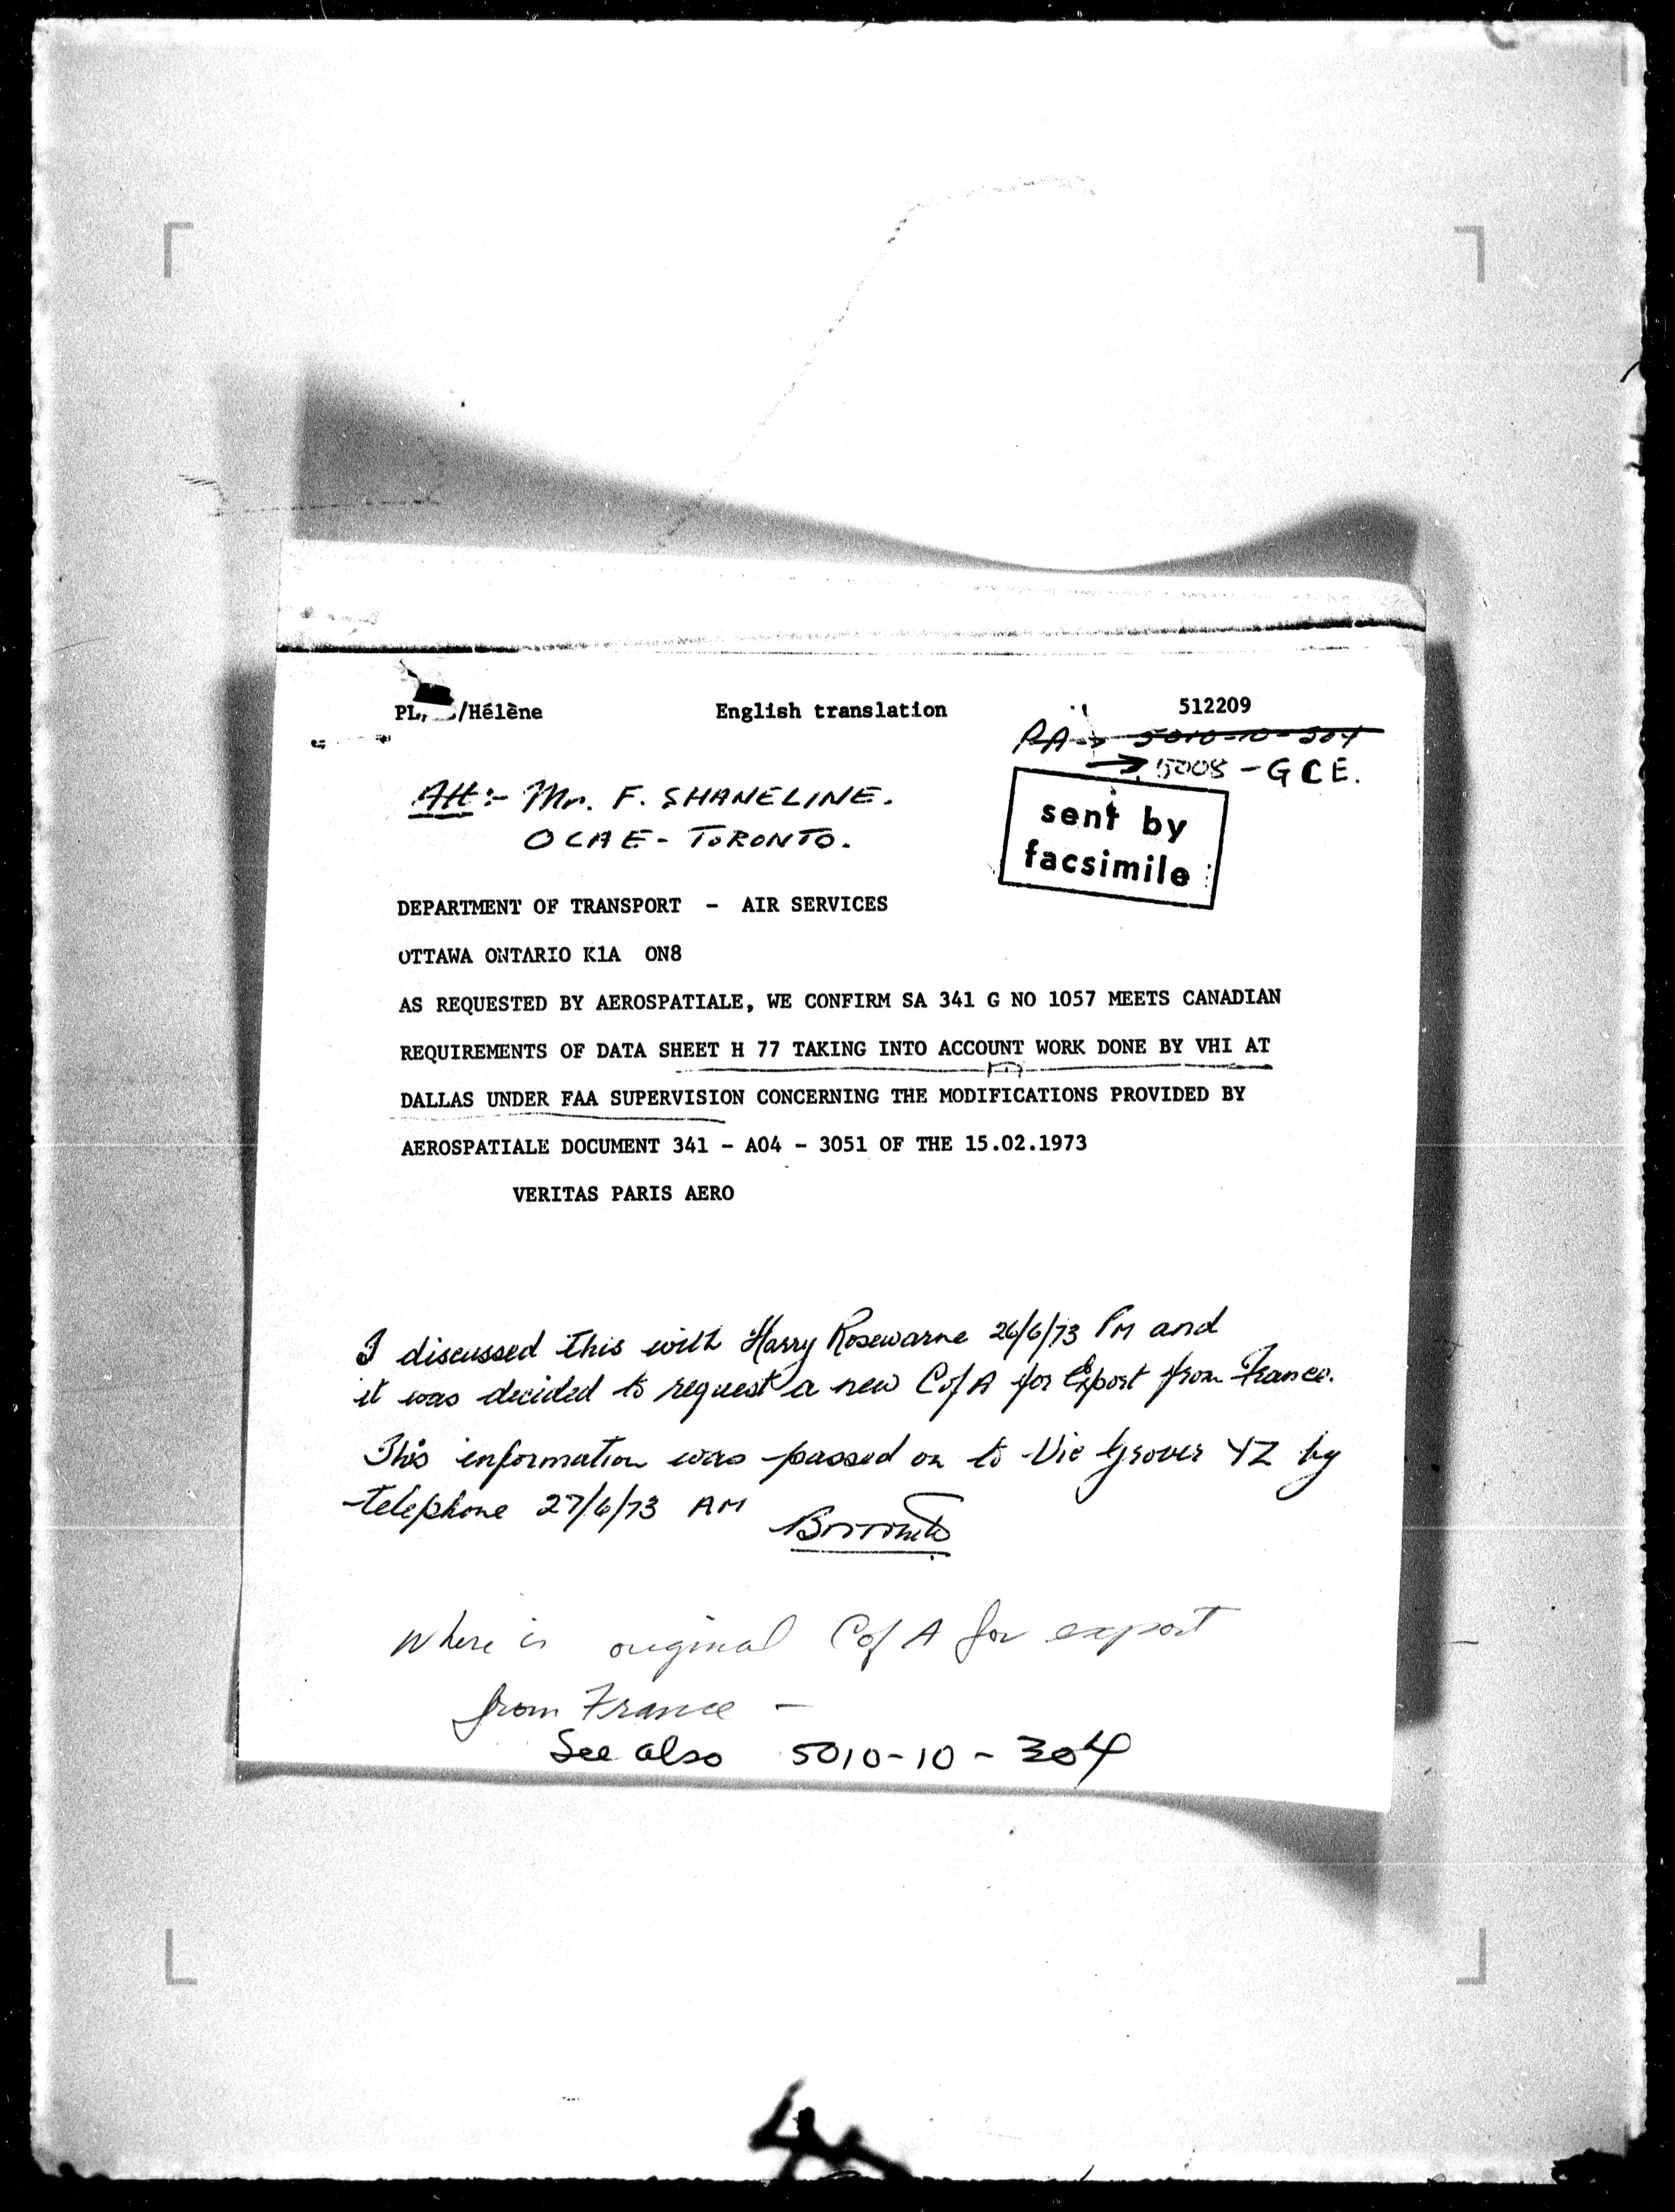 /Hélène English translation 512209
PA → 5010-10-304
→ 5008 - GCE.
Att:- Mr. F. SHANELINE.
OCAE - TORONTO.
sent by
facsimile
DEPARTMENT OF TRANSPORT - AIR SERVICES
OTTAWA ONTARIO K1A ON8
AS REQUESTED BY AEROSPATIALE, WE CONFIRM SA 341 G NO 1057 MEETS CANADIAN
REQUIREMENTS OF DATA SHEET H 77 TAKING INTO ACCOUNT WORK DONE BY VHI AT
DALLAS UNDER FAA SUPERVISION CONCERNING THE MODIFICATIONS PROVIDED BY
AEROSPATIALE DOCUMENT 341 - A04 - 3051 OF THE 15.02.1973
VERITAS PARIS AERO
I discussed this with Harry Rosewarne 26/6/73 PM and
it was decided to request a new C of A for Export from France.
This information was passed on to Vic Grover YZ by
telephone 27/6/73 AM
Where is original C of A for export
from France -
See also 5010-10-304